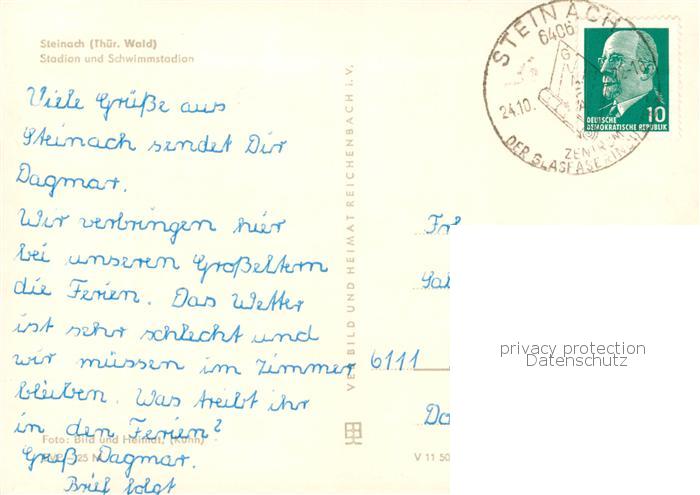 Steinach (Thür. Wald)
Stadion und Schwimmstadion
Viele Grüße aus
Steinach sendet Dir
Dagmar.
Wir verbringen hier
bei unseren Großeltern
die Ferien. Das Wetter
ist sehr schlecht und
wir müssen im Zimmer
bleiben. Was treibt ihr
in den Ferien?
Gruß Dagmar.
Brief folgt
Foto: Bild und Heimat, (Kühn)
25
VEB BILD UND HEIMAT REICHENBACH i. V.
STEINACH
6406
24.10.
ZENTRUM
DER GLASFASER
DEUTSCHE
DEMOKRATISCHE REPUBLIK
10
6111
V 11 50
privacy protection
Datenschutz